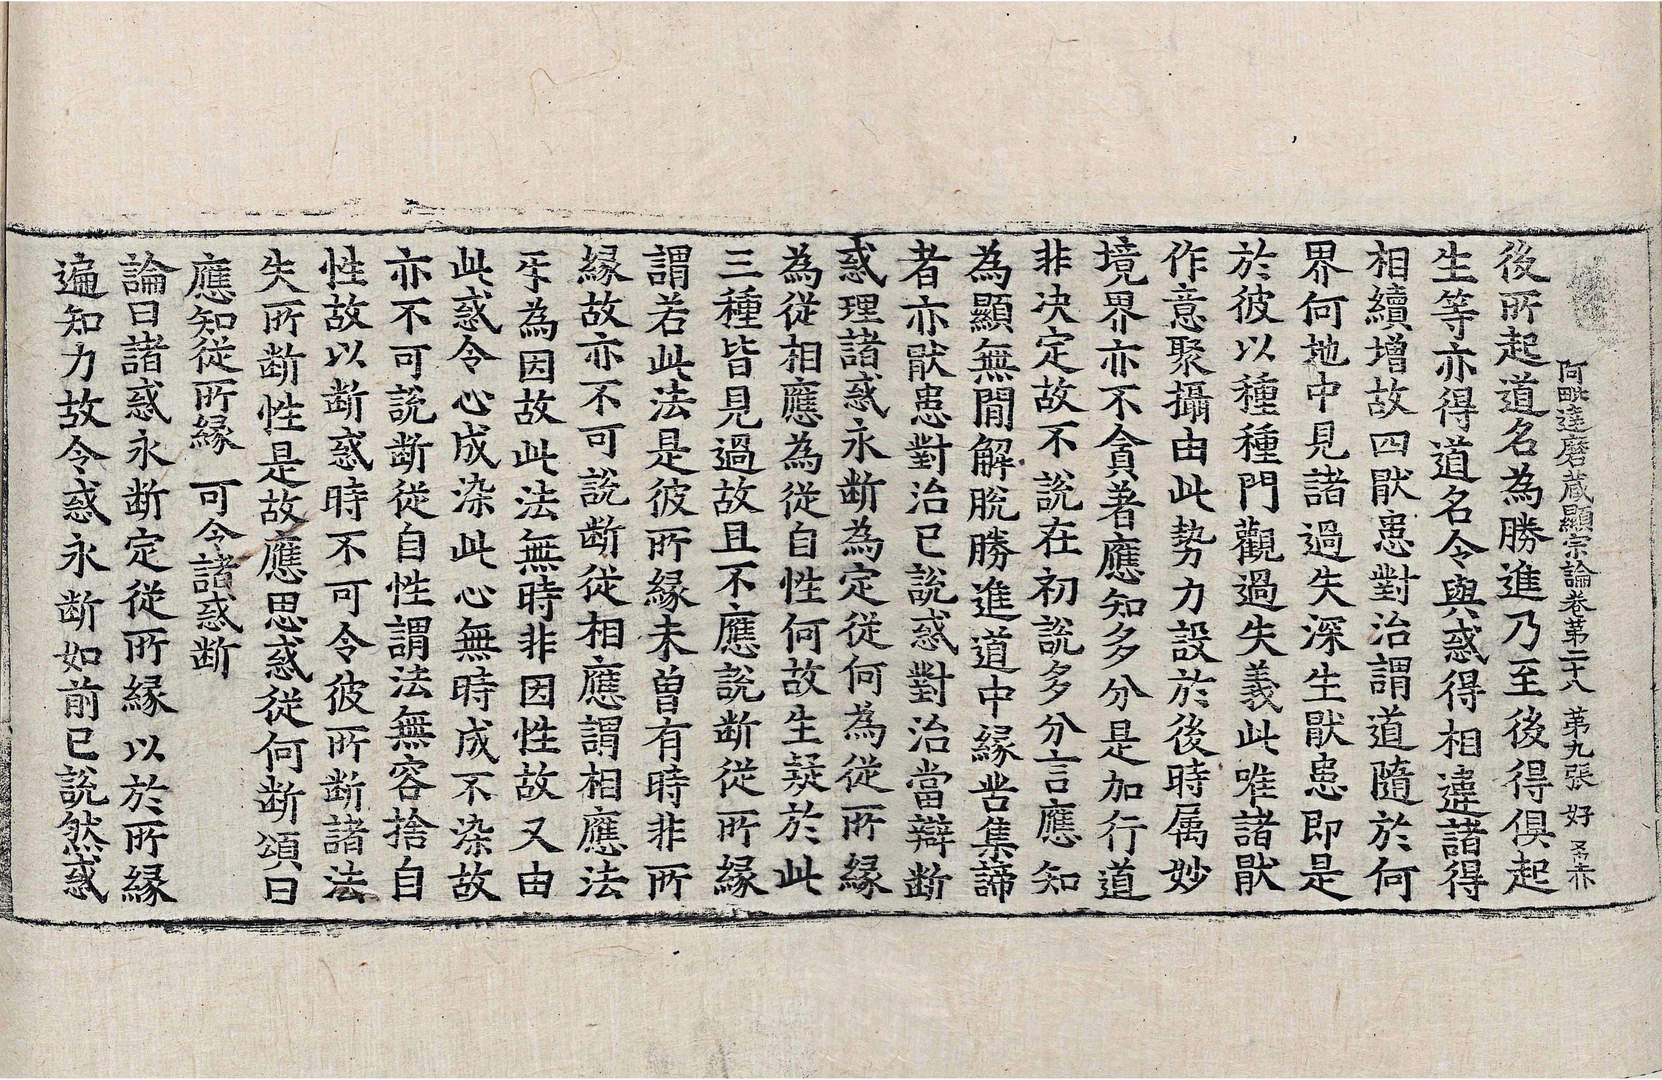 阿毗達磨藏顯宗論卷第二十八 第九張 好
後所起道名為勝進乃至後得俱起
生等亦得道名令與惑得相違諸得
相續增故四猒患對治謂道隨於何
界何地中見諸過失深生猒患即是
於彼以種種門觀過失義此唯諸猒
作意聚攝由此勢力設於後時属妙
境界亦不貪著應知多分是加行道
非决定故不說在初說多分言應知
為顯無閒解脫勝進道中緣苦集諦
者亦猒患對治已說惑對治當辯断
惑理諸惑永断為定從何為從所緣
為從相應為從自性何故生疑於此
三種皆見過故且不應說断從所緣
謂若此法是彼所緣未曾有時非所
緣故亦不可說断從相應謂相應法
㸦為因故此法無時非因性故又由
此惑令心成染此心無時成不染故
亦不可說断從自性謂法無容捨自
性故以断惑時不可令彼所断諸法
失所断性是故應思惑從何断頌曰
應知從所緣 可令諸惑断
論曰諸惑永断定從所緣以於所緣
遍知力故令惑永断如前已說然惑